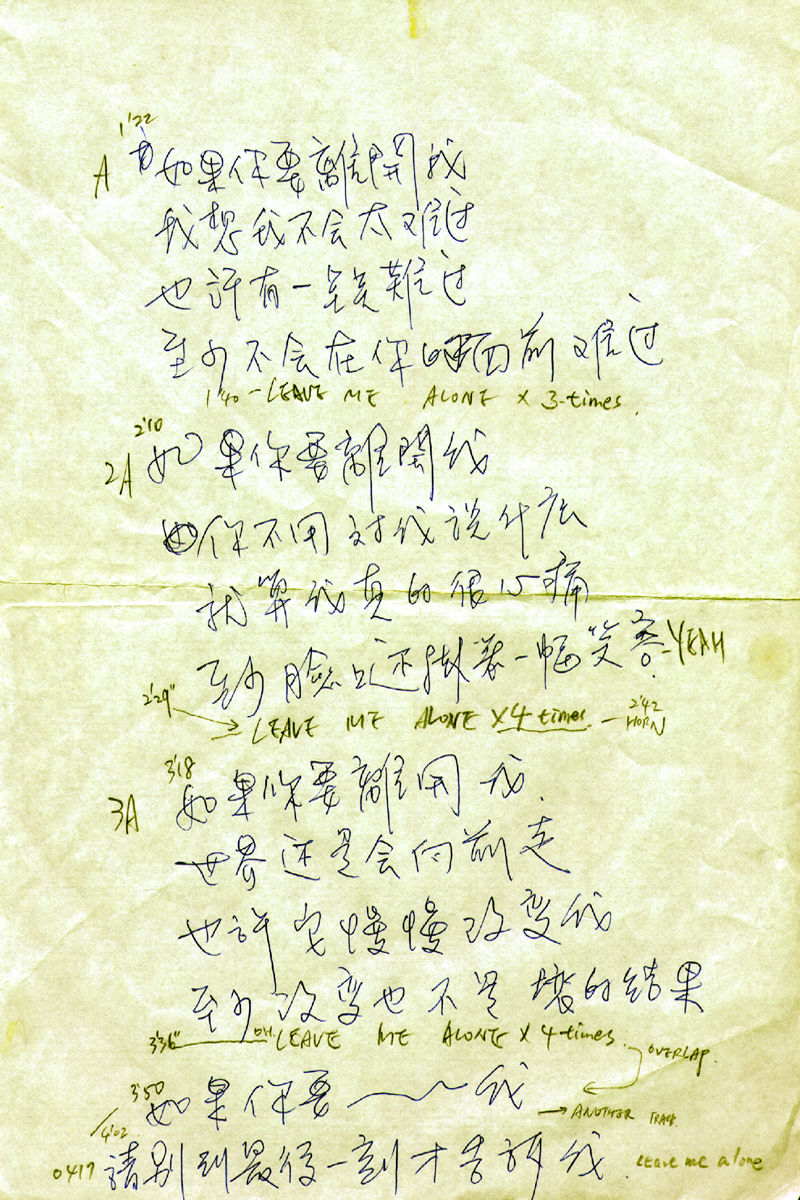 1'22
A 如果你要離開我
我想我不会太难过
也許有一些難过
至少不会在你的面前难过
1'40 - LEAVE ME ALONE × 3-times.
2'10
2A 如果你要離開我
你不用对我说什么
就算我真的很心痛
至少脸上还掛着一幅笑容 - YEAH
2'29" → LEAVE ME ALONE × 4 times - 2'42 HORN
3'18
3A 如果你要離开我.
世界还是会向前走
也許它慢慢改变我
至少改变也不是壞的结果
3'36" OH. LEAVE ME ALONE × 4-times.
OVERLAP.
3'50
如果你要～～我
→ ANOTHER TRACK
/4'02
0417 請别到最後一刻才告訴我. Leave me alone